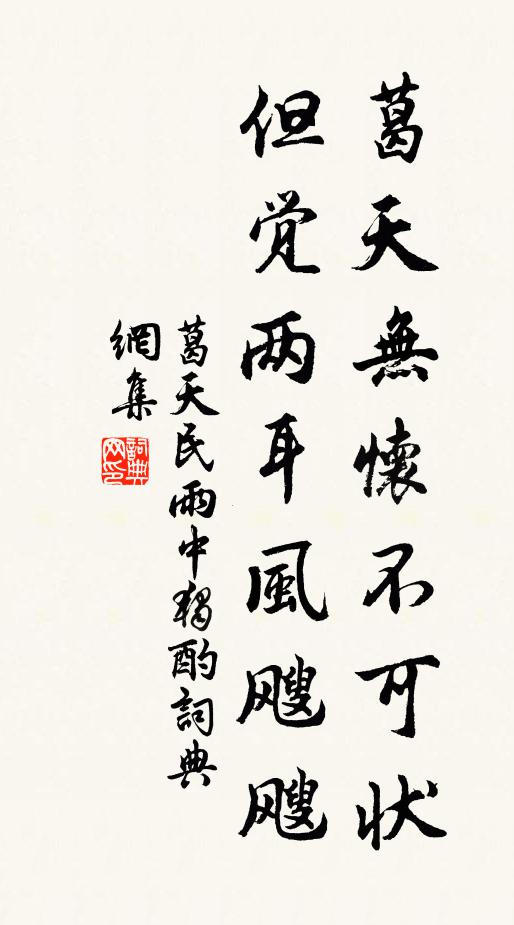 葛天無懷不可状
但覚两耳風颼颼
葛天民雨中獨酌詞典
網集
詞典網印